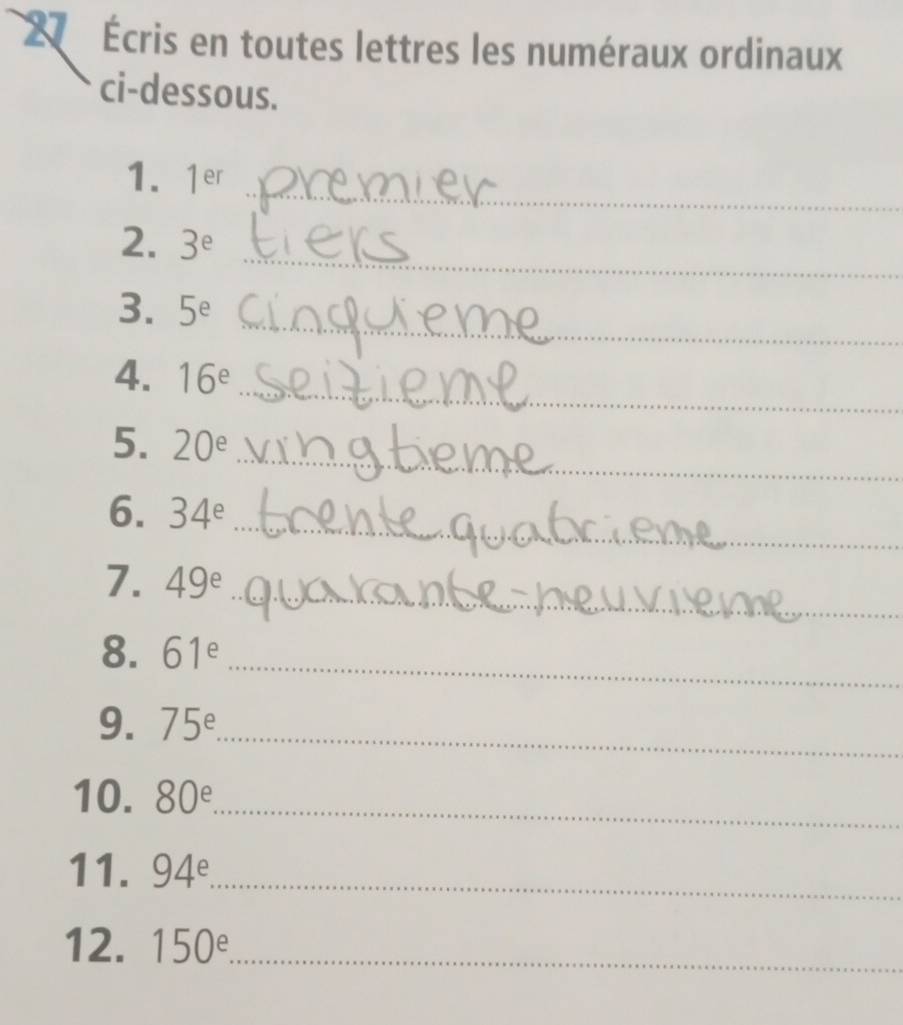 27 Écris en toutes lettres les numéraux ordinaux
ci-dessous.
1. 1er premier
2. 3e tiers
3. 5e cinquieme
4. 16e seizieme
5. 20e vingtieme
6. 34e trente quatrieme
7. 49e quarante-neuvieme
8. 61e
9. 75e
10. 80e
11. 94e
12. 150e